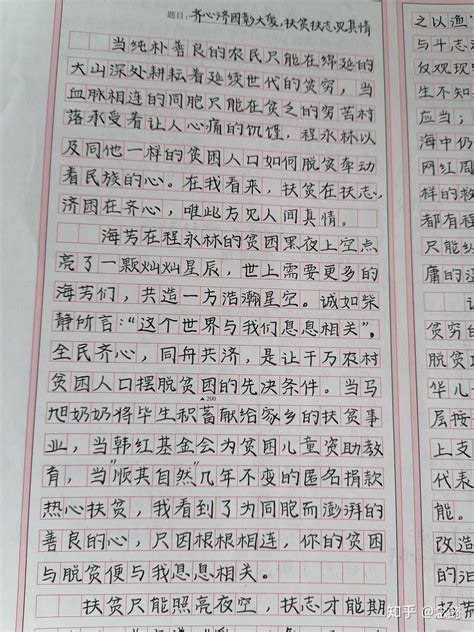 题目：齐心济困彰大爱，扶贫扶志见真情
当纯朴善良的农民只能在绵延的
大山深处耕耘着延续世代的贫穷，当
血脉相连的同胞只能在贫乏的穷苦村
落承受着让人心痛的饥馑，程永林以
及同他一样的贫困人口如何脱贫牵动
着民族的心。在我看来，扶贫在扶志，
济困在齐心，唯此方见人间真情。
海芳在程永林的贫困黑夜上空点
亮了一颗灿灿星辰，世上需要更多的
海芳们，共造一方浩瀚星空。诚如柴
静所言：“这个世界与我们息息相关”，
全民齐心，同舟共济，是让千万农村
贫困人口摆脱贫困的先决条件。当马
▲200
旭奶奶将毕生积蓄献给家乡的扶贫事
业，当韩红基金会为贫困儿童资助教
育，当“顺其自然”几年不变的匿名捐款
热心扶贫，我看到了为同胞而澎湃的
善良的心，只因根根相连，你的贫困
与脱贫便与我息息相关。
扶贫只能照亮夜空，扶志才能期
之以渔
与斗志
反观现
生不知
应当；
海中仍
网红周
样的救
都有
只能纵
庸的
贫穷的
脱贫攻
华儿
层接
上支
代表
能。
改造
的
知乎